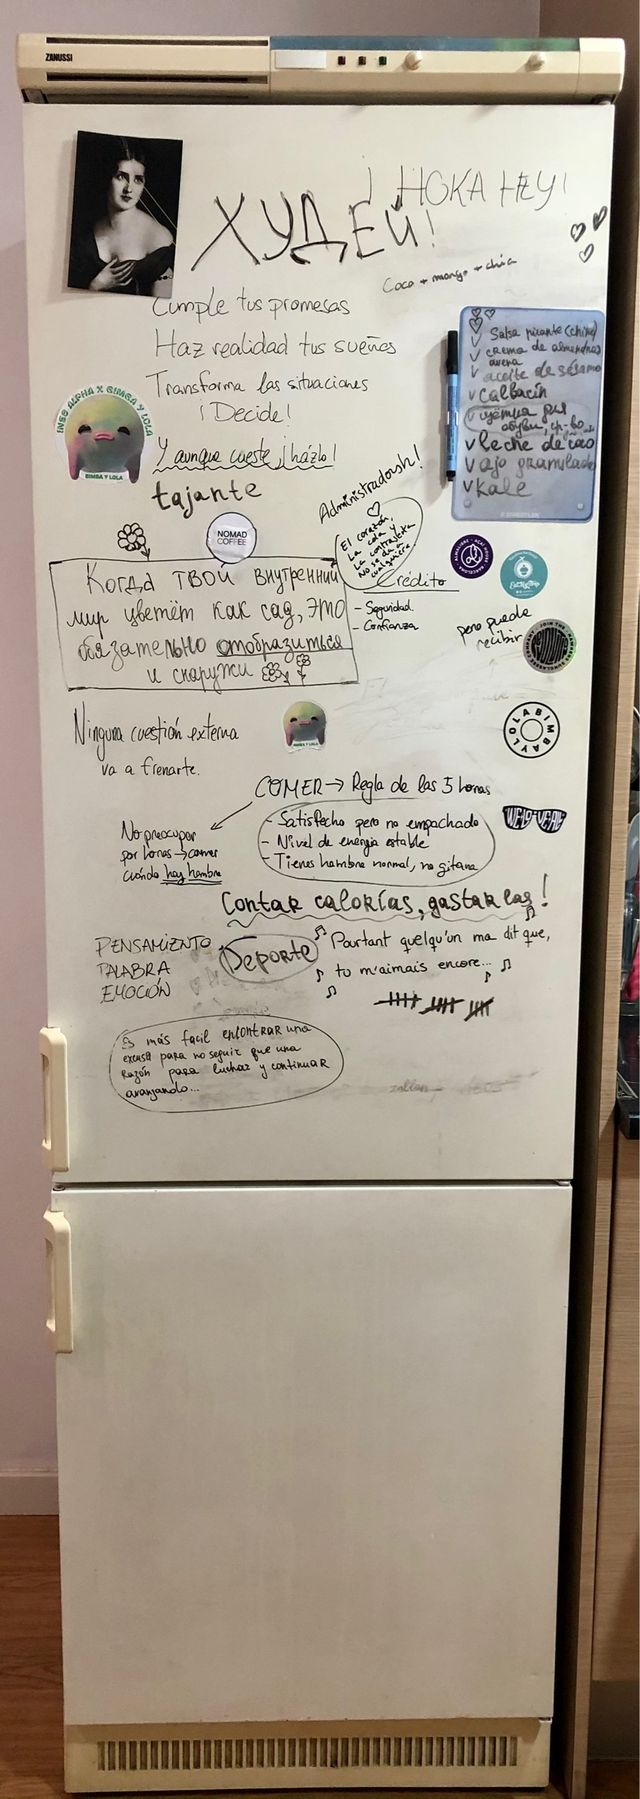 ZANUSSI
¡HOKA HEY!
ХУДЕЙ!
Coco + mango + chía
Cumple tus promesas
Haz realidad tus sueños
Transforma las situaciones
¡Decide!
Y aunque cueste ¡hazlo!
tajante
INES ALPHA X BIMBA Y LOLA
BIMBA Y LOLA
Salsa picante (china)
crema de almendras
avena
aceite de sésamo
calbacín
leche de coco
ajo granulado
kale
NOMAD
COFFEE
Administradosh!
El corazón,
la cola y
la contraseña
no se da a
cualquiera
Crédito
- Seguridad
- Confianza
pero puede
recibir
Когда твой внутренний
мир цветёт как сад, это
обязательно отобразиться
и снаружи
Ninguna cuestión externa
va a frenarte.
BIMBA Y LOLA
BIMBAYLOLA
COMER → Regla de las 3 horas
- Satisfecho pero no empachado
- Nivel de energía estable
- Tienes hambre normal, no gitana
No preocupar
por horas → comer
cuándo hay hambre
Contar calorías, gastarlas!
PENSAMIENTO
PALABRA
EMOCIÓN
Deporte
Pourtant quelqu'un ma dit que,
tu m'aimais encore...
Es más facil encontrar una
excusa para no seguir que una
razón para luchar y continuar
avanzando...